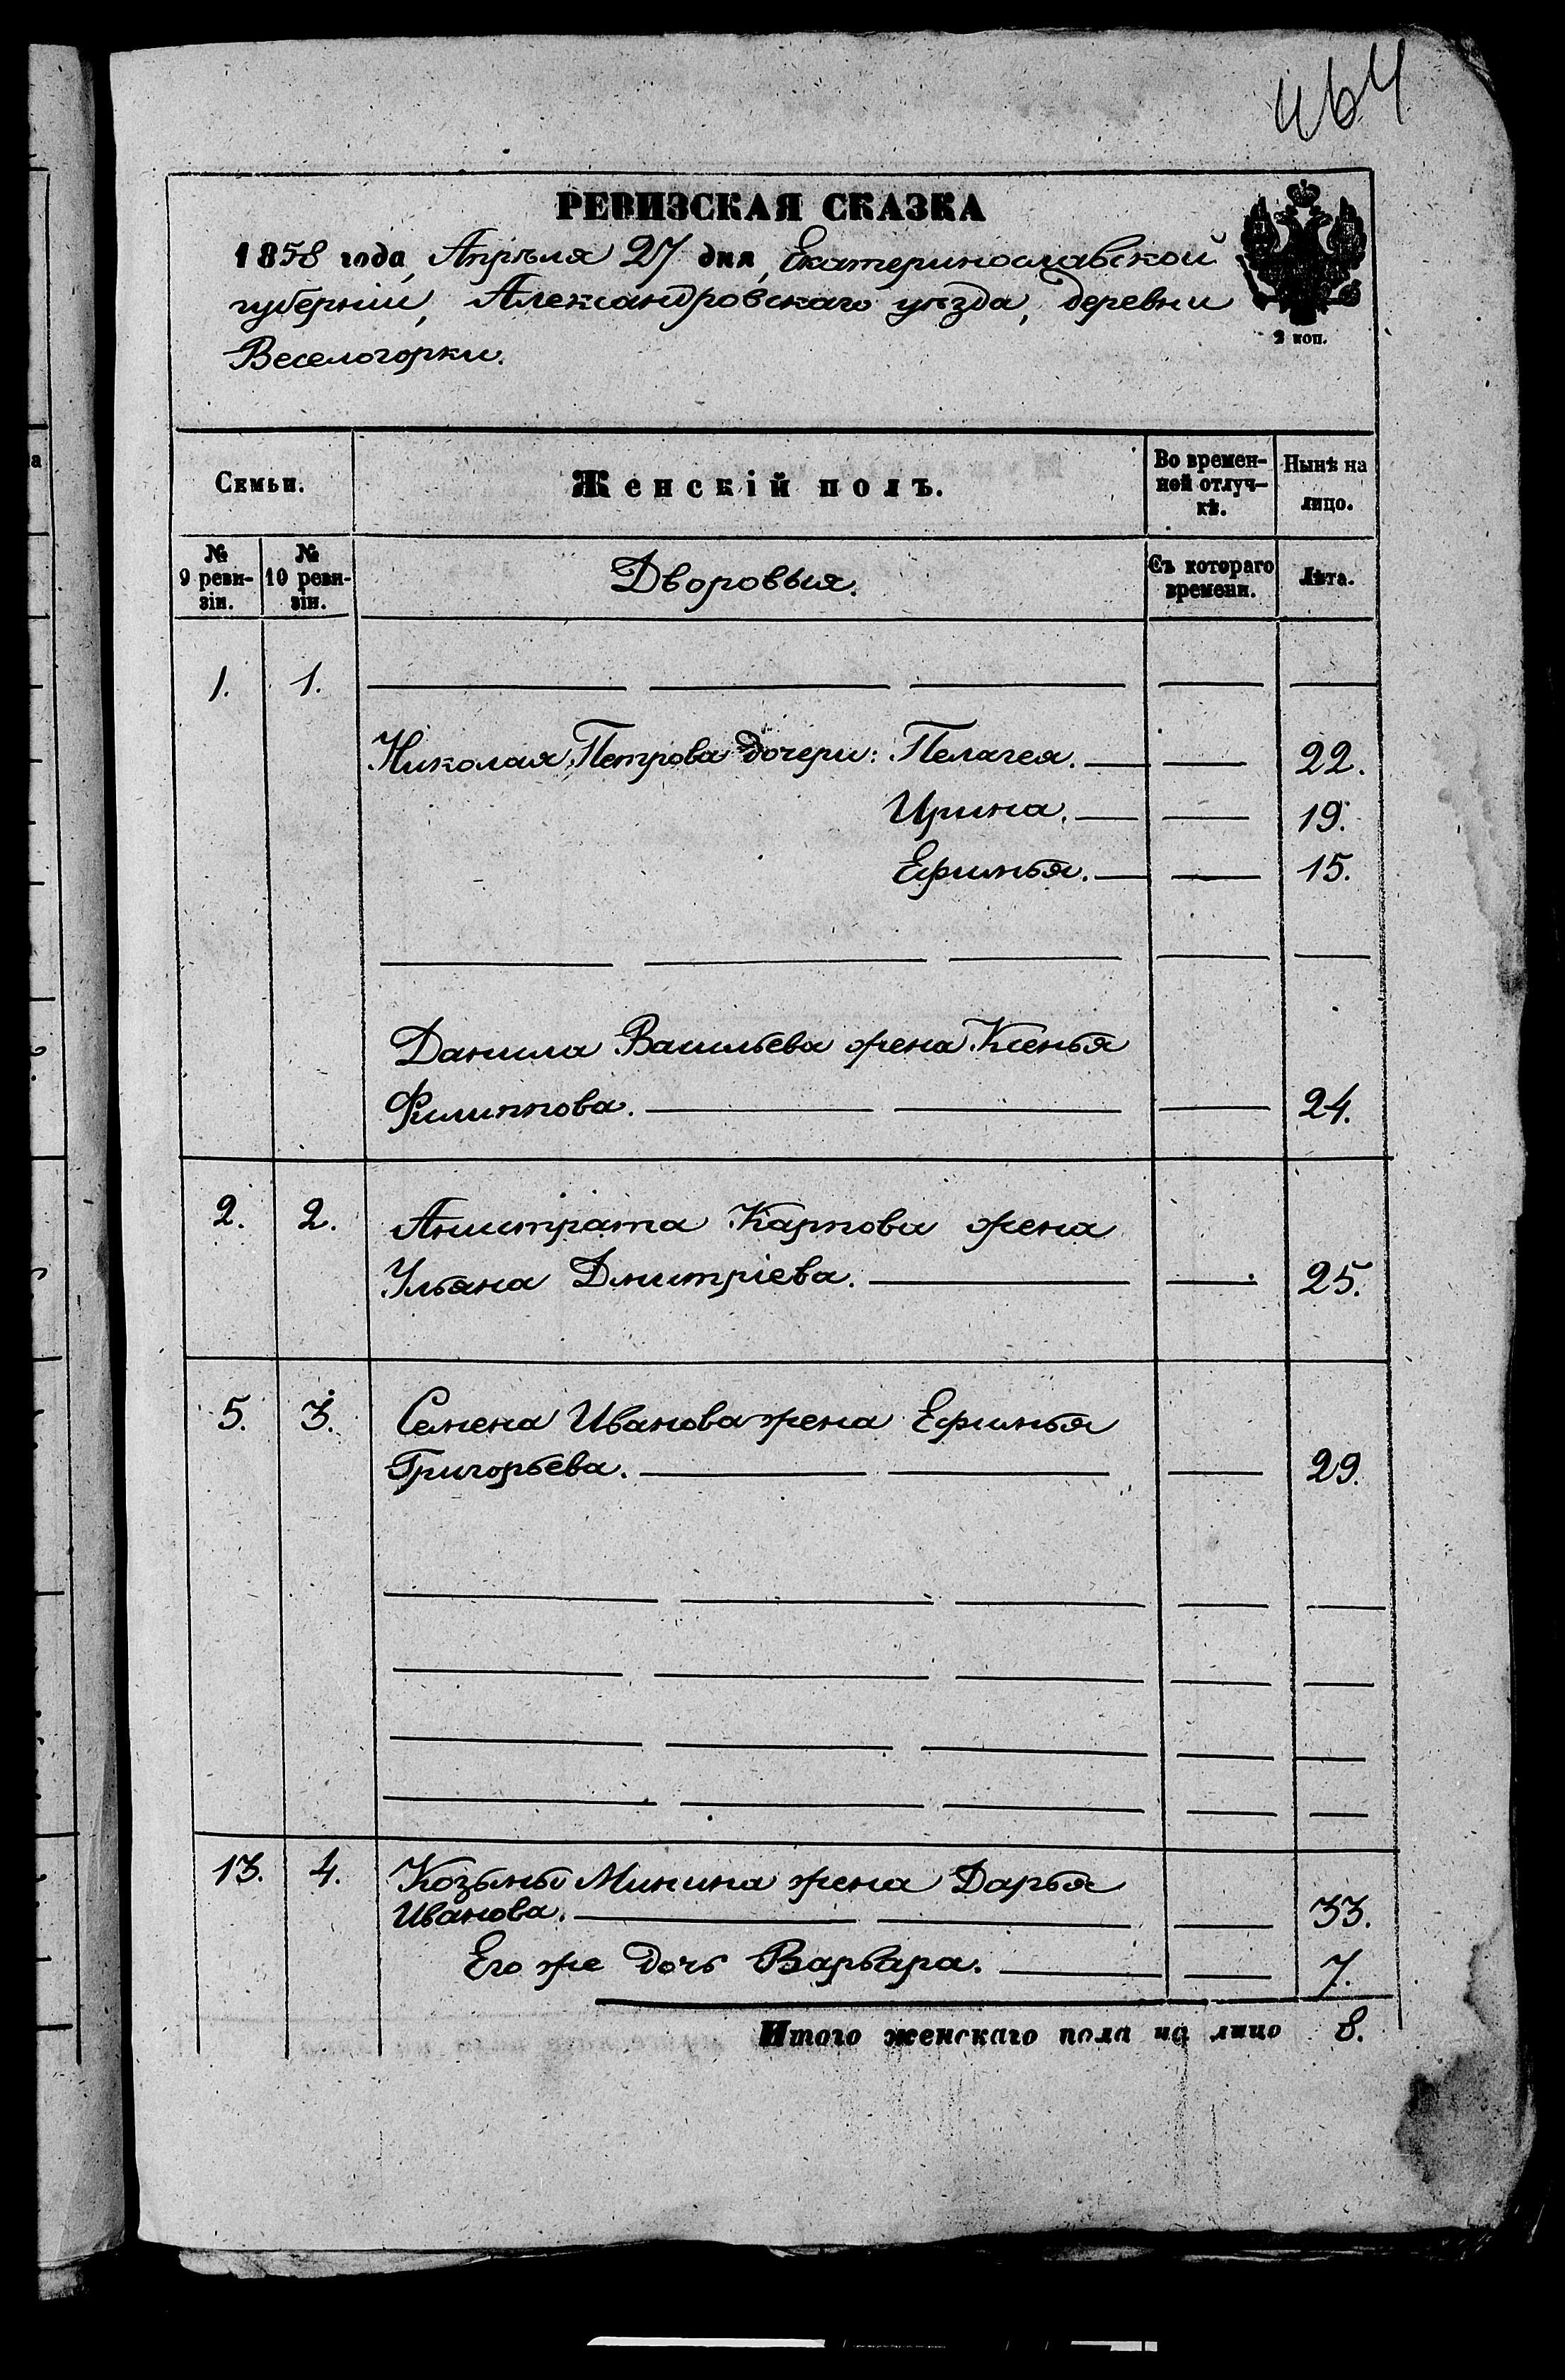 464
РЕВИЗСКАЯ СКАЗКА
1858 года, Апрѣля 27 дня, Екатеринославской
губерніи, Александровскаго уѣзда, деревни
Веселогорки.
2 коп.
Семьи.
Женскій полъ.
Во времен-
ной отлуч-
кѣ.
Нынѣ на
лицо.
№
9 реви-
зіи.
№
10 реви-
зіи.
Дворовыя.
Съ котораго
времени.
Лѣта.
1. 1.
Николая Петрова дочери: Пелагея. 22.
Ирина. 19.
Ефимья. 15.
Данила Васильева жена Ксенья
Филиппова. 24.
2. 2. Анистрата Карпова жена
Ульяна Дмитріева. 25.
5. 3. Семена Иванова жена Ефимья
Григорьева. 29.
13. 4. Козьмы Минина жена Дарья
Иванова. 33.
Его же дочь Варвара. 7.
Итого женскаго пола на лицо 8.